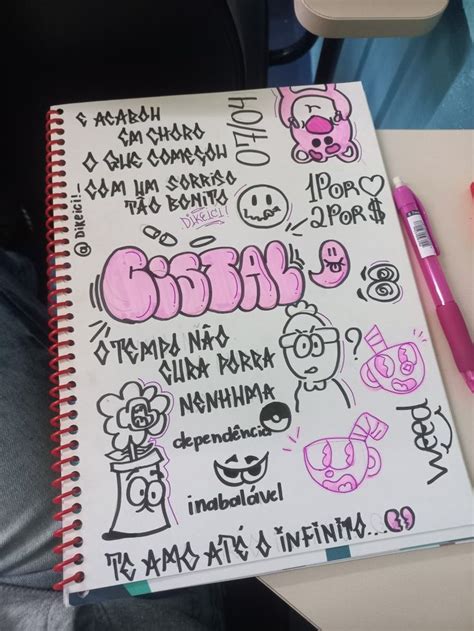 E ACABOU
EM CHORO
O QUE COMEÇOU
COM UM SORRISO
TÃO BONITO
DIKEICI!
07/04
1 POR ♡
2 POR $
@DIKEICI!_
CISTAL
O TEMPO NÃO
CURA PORRA
NENHUMA
?
dependência
inabalável
weed
TE AMO ATÉ O INFINITO...